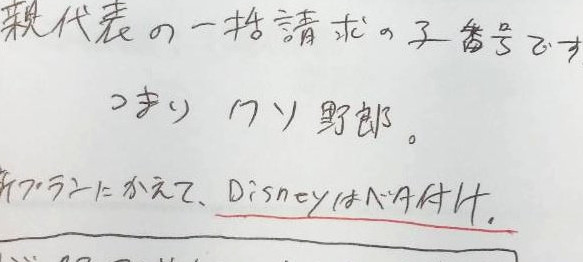 親代表の一括請求の子番号です
つまり クソ野郎。
新プランにかえて、Disneyはベタ付け.